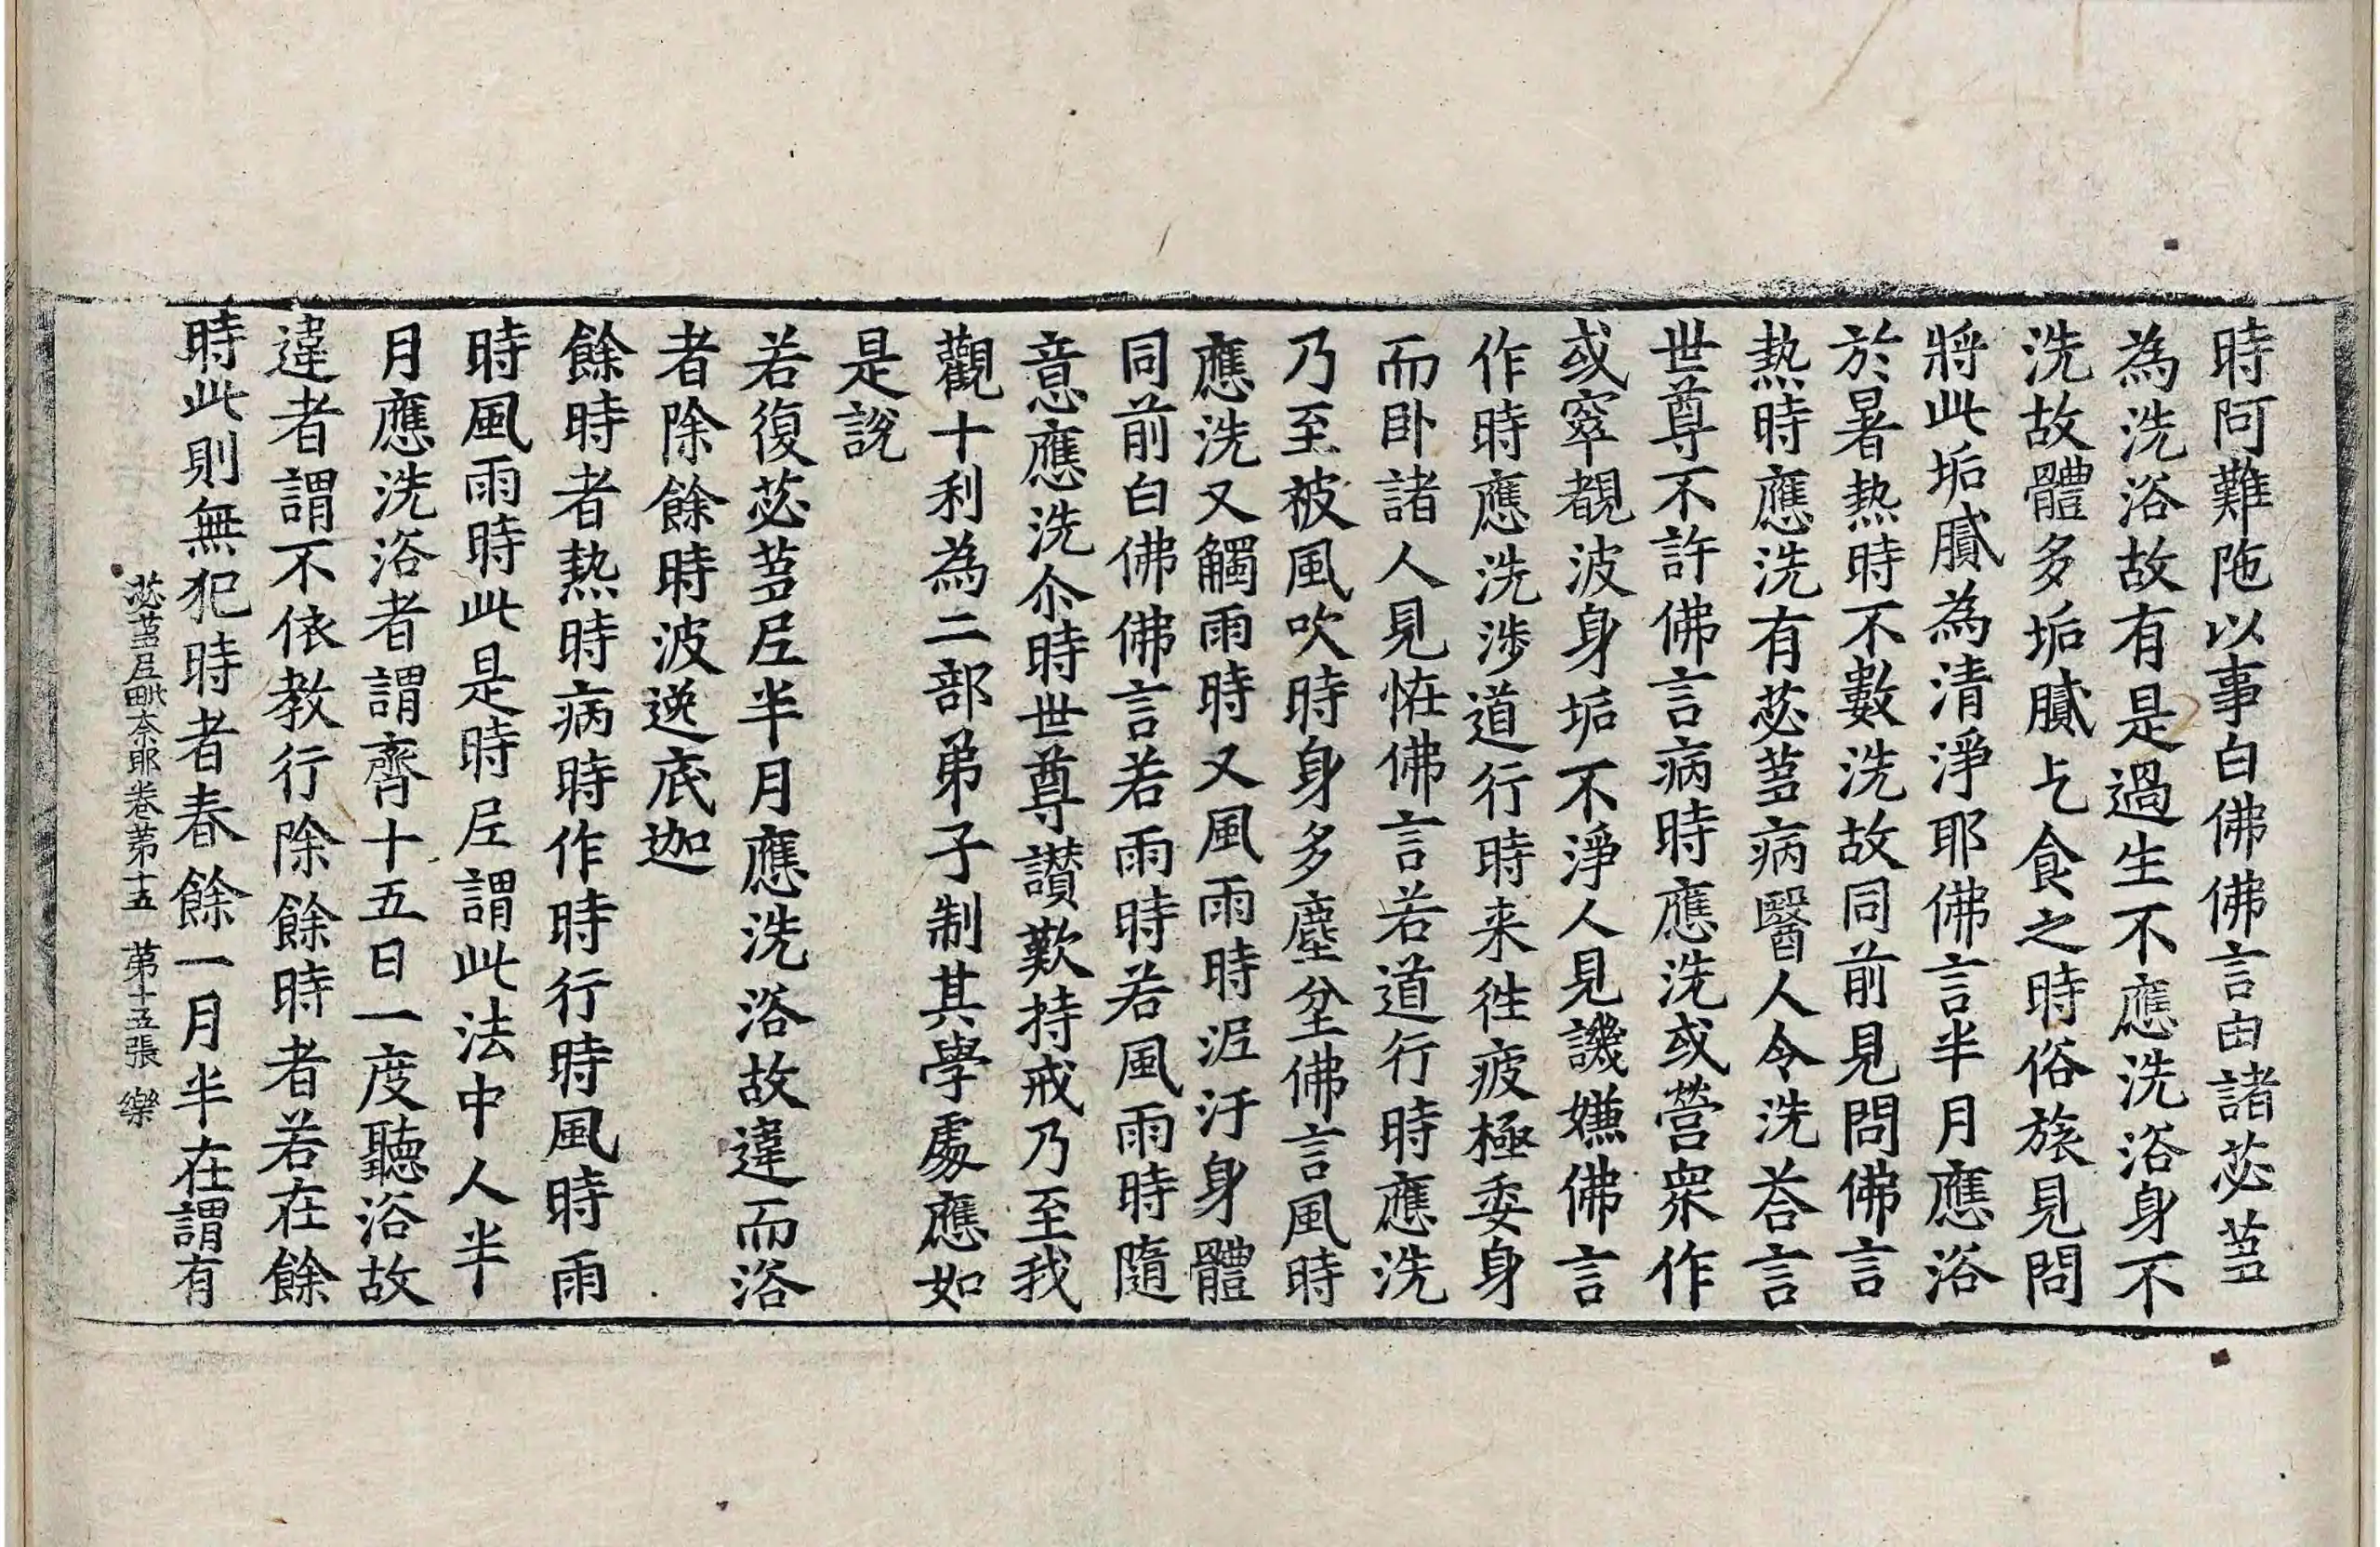 時阿難陁以事白佛佛言由諸苾蒭
為洗浴故有是過生不應洗浴身不
洗故體多垢膩乞食之時俗旅見問
將此垢膩為清淨耶佛言半月應浴
於暑熱時不數洗故同前見問佛言
熱時應洗有苾蒭病醫人令洗荅言
世尊不許佛言病時應洗或營衆作
或窣覩波身垢不淨人見譏嫌佛言
作時應洗涉道行時来徃疲極委身
而卧諸人見恠佛言若道行時應洗
乃至被風吹時身多塵坌佛言風時
應洗又觸雨時又風雨時泥汙身體
同前白佛佛言若雨時若風雨時隨
意應洗尒時世尊讃歎持戒乃至我
觀十利為二部弟子制其學處應如
是說
若復苾蒭尼半月應洗浴故違而浴
者除餘時波逸底迦
餘時者熱時病時作時行時風時雨
時風雨時此是時尼謂此法中人半
月應洗浴者謂齊十五日一度聽浴故
違者謂不依教行除餘時者若在餘
時此則無犯時者春餘一月半在謂有
苾蒭尼毗奈耶卷第十五 第十五張 樂